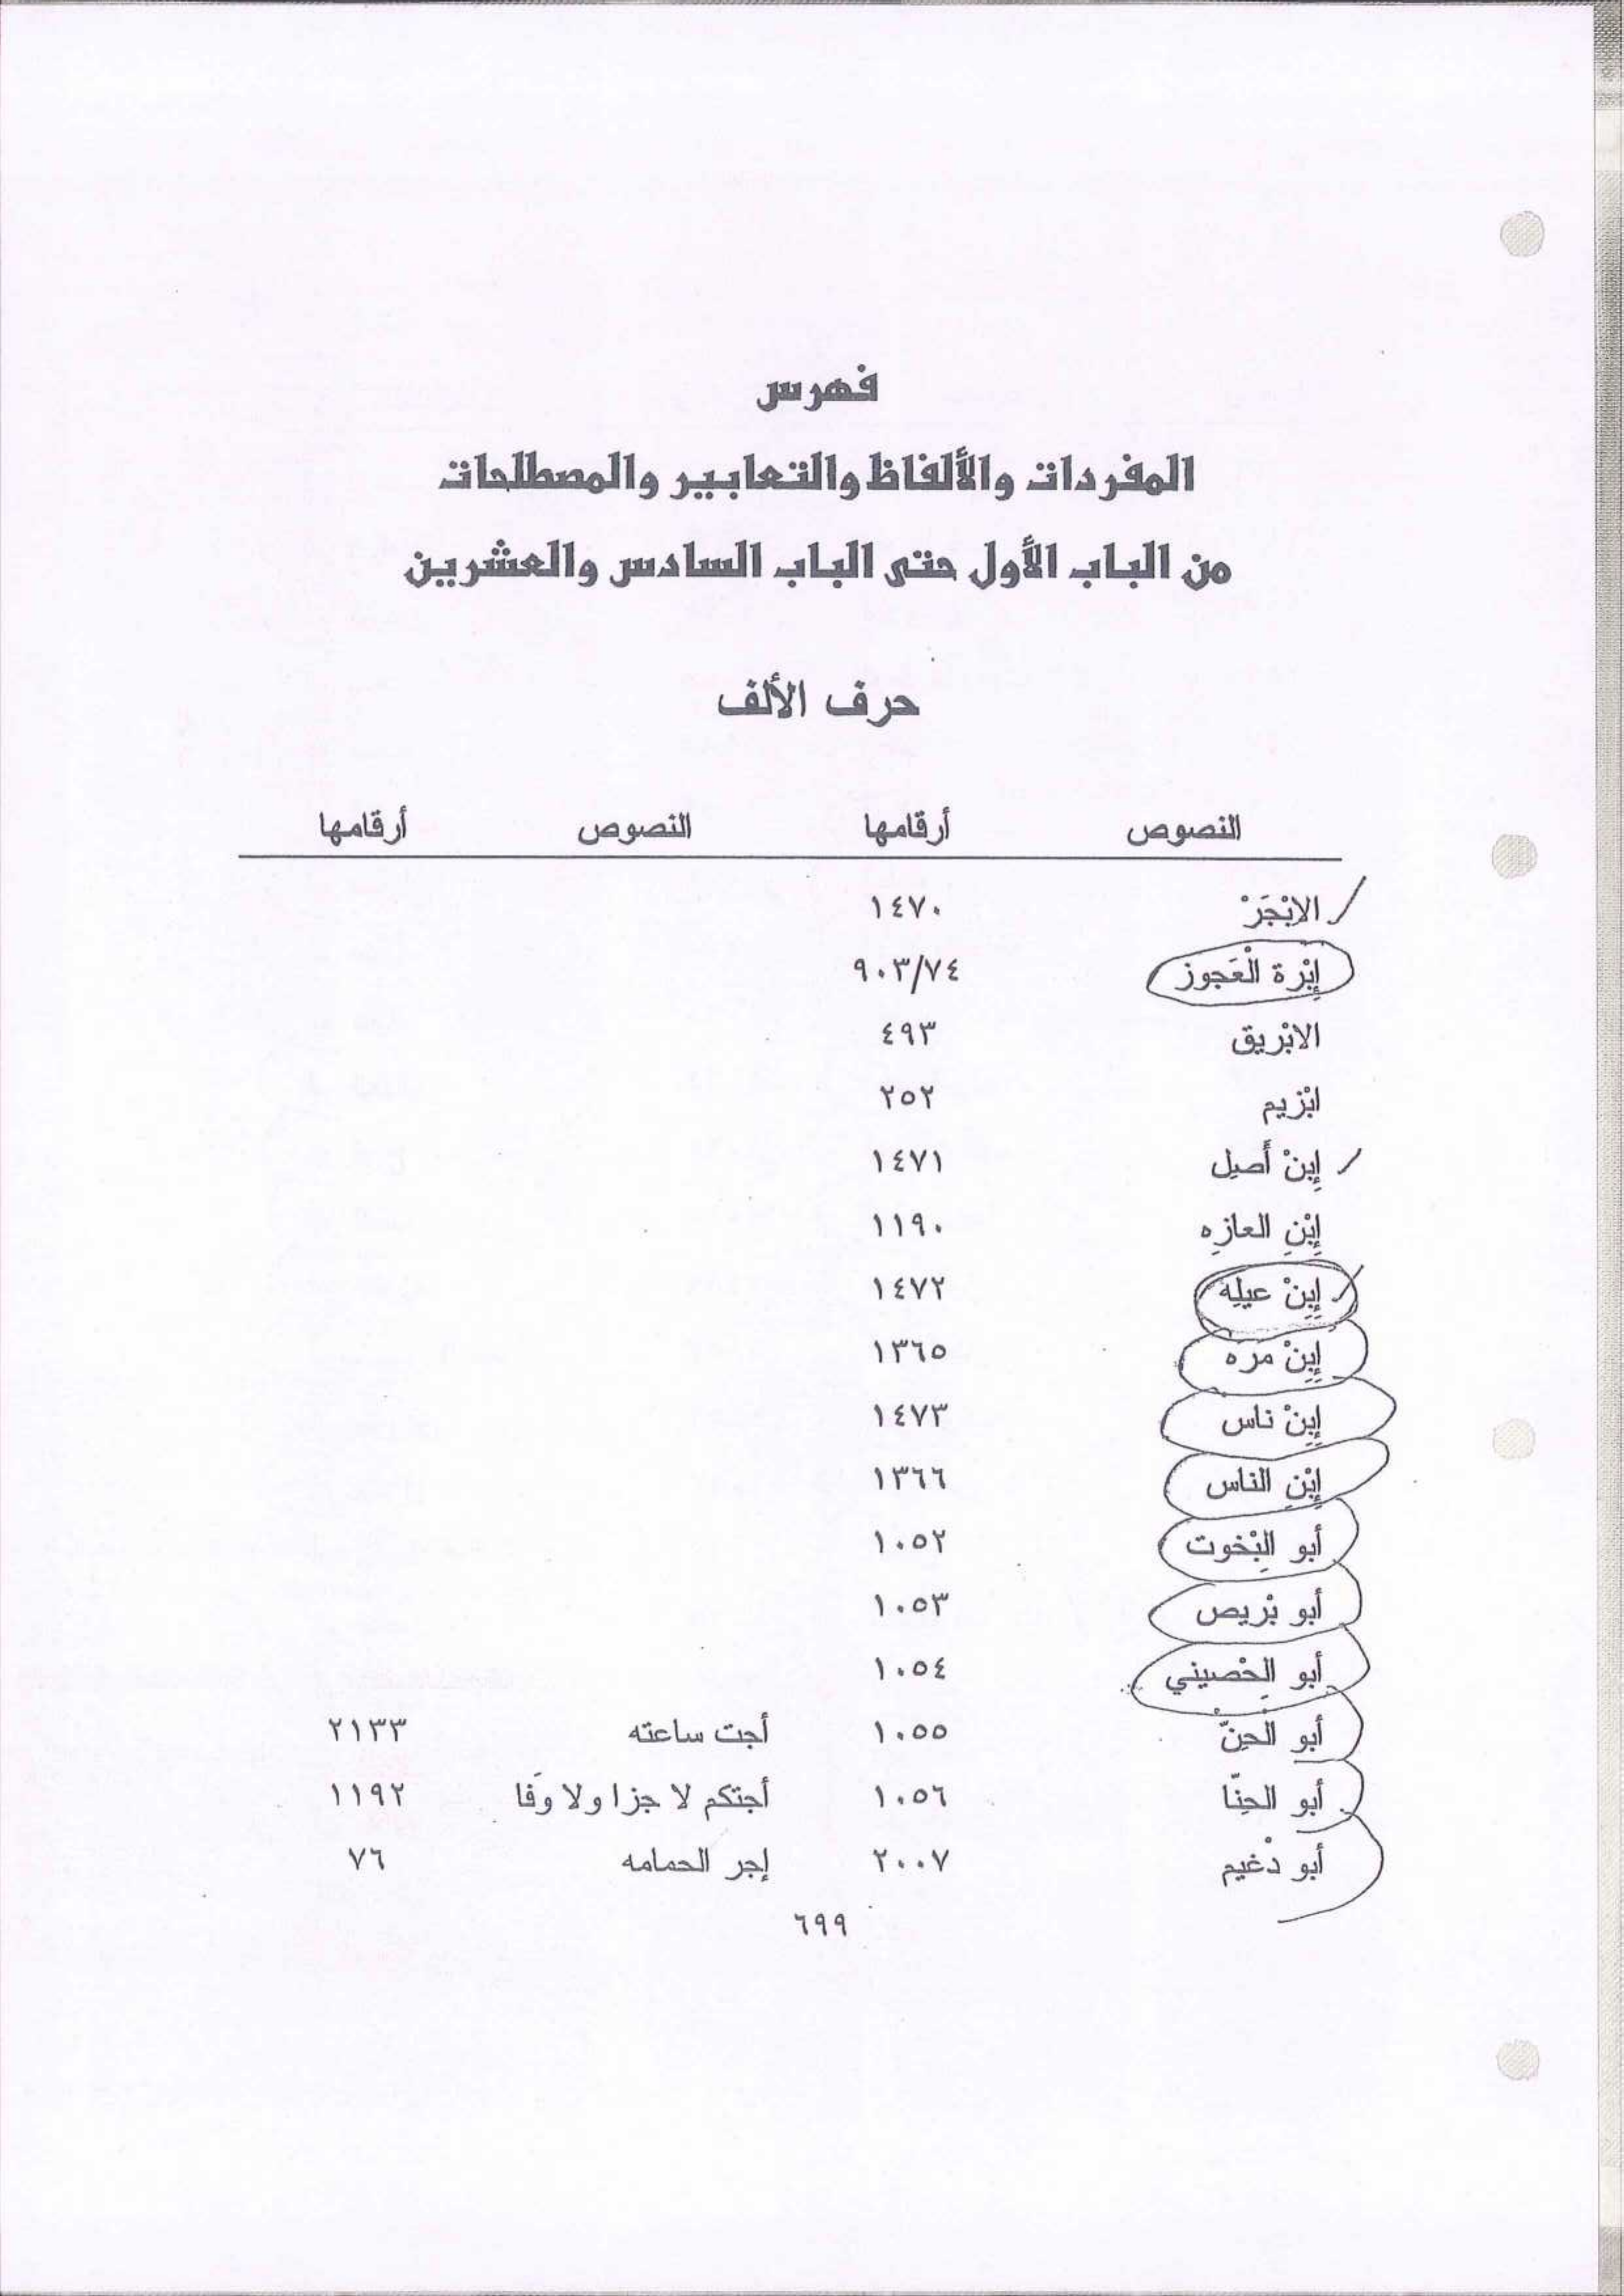 فهرس
المفردات والألفاظ والتعابير والمصطلحات
من الباب الأول حتى الباب السادس والعشرين
حرف الألف
النصوص أرقامها النصوص أرقامها
الابْجَرْ ١٤٧٠
إبْرة الْعَجوز ٩٠٣/٧٤
الابْريق ٤٩٣
ابْزيم ٢٥٢
إبنْ أَصيل ١٤٧١
إِبْنِ العازِه ١١٩٠
إِبِنْ عيلِة ١٤٧٢
إِبِنْ مَرَه ١٣٦٥
إِبِنْ ناس ١٤٧٣
إِبْنِ الناس ١٣٦٦
أبو الْبِْخوت ١٠٥٢
أبو بْريص ١٠٥٣
أبو الِحْصيني ١٠٥٤
أبو الْحِنّ ١٠٥٥ أجت ساعته ٢١٣٣
أبو الحِنّا ١٠٥٦ أجتكم لا جزا ولا وَفا ١١٩٢
أبو دْغيم ٢٠٠٧ إجر الحمامه ٧٦
٦٩٩